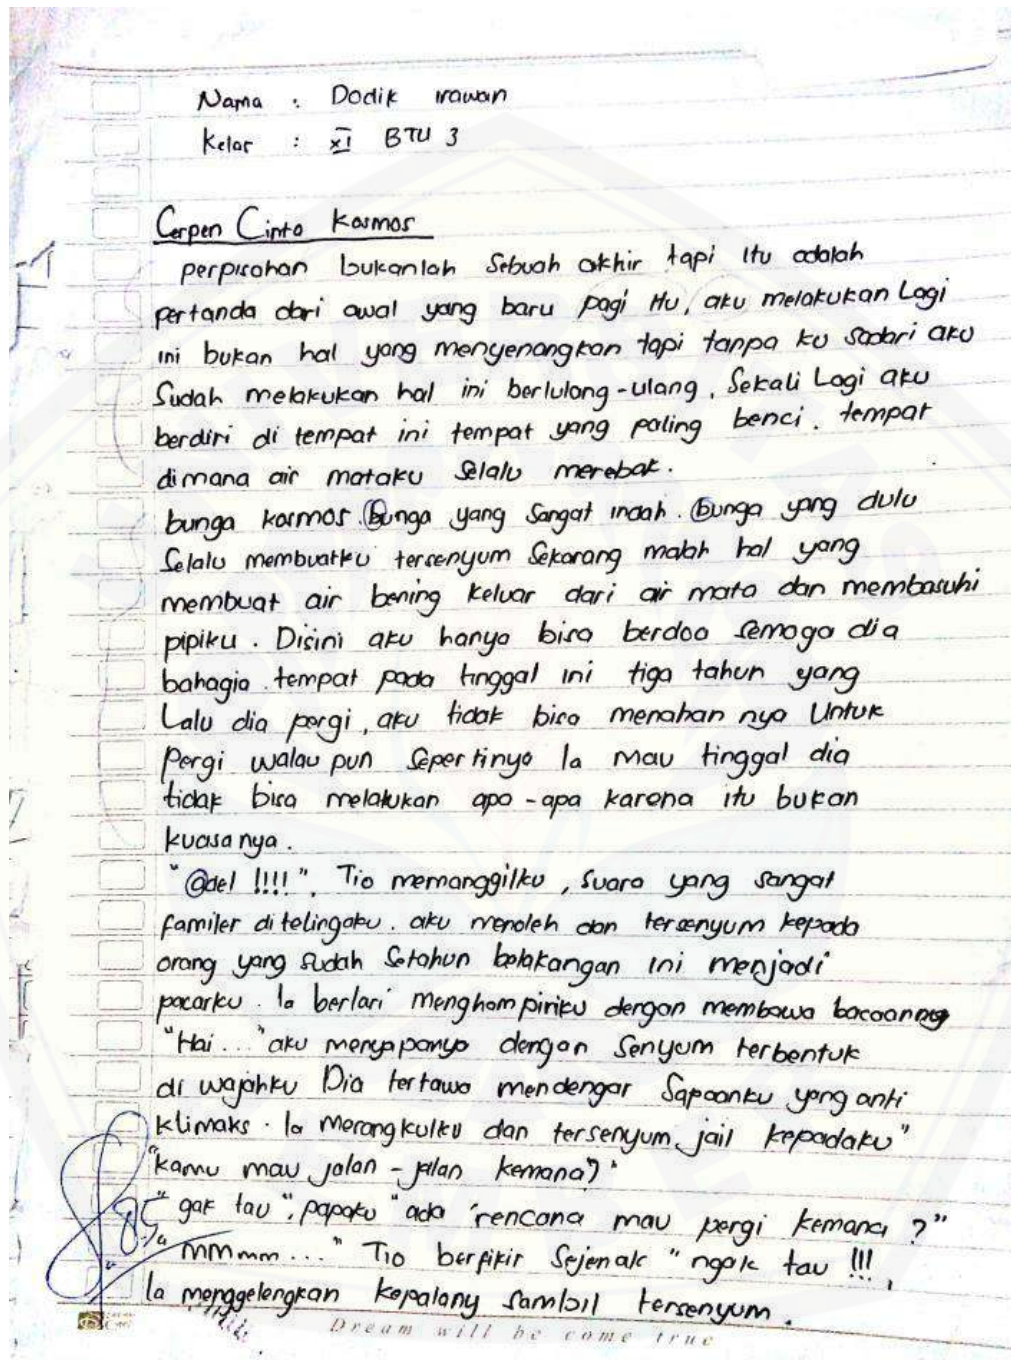 Nama : Dodik irawan
Kelas : XI BTU 3
Cerpen Cinta Kosmos
perpisahan bukanlah Sebuah akhir tapi itu adalah
pertanda dari awal yang baru pagi itu, aku melakukan Lagi
ini bukan hal yang menyenangkan tapi tanpa ku sadari aku
Sudah melakukan hal ini berlulang-ulang, Sekali Lagi aku
berdiri di tempat ini tempat yang paling benci. tempat
dimana air mataku Selalu merebak.
bunga kosmos. Bunga yang Sangat indah. Bunga yang dulu
Selalu membuatku tersenyum Sekarang malah hal yang
membuat air bening keluar dari air mata dan membasuhi
pipiku. Disini aku hanya bisa berdoa semoga dia
bahagia. tempat pada tinggal ini tiga tahun yang
Lalu dia pergi, aku tidak bisa menahan nya Untuk
Pergi walau pun Sepertinya Ia mau tinggal dia
tidak bisa melakukan apa-apa karena itu bukan
kuasa nya.
"@del !!!!". Tio memanggilku, Suara yang sangat
familer di telingaku. aku menoleh dan tersenyum kepada
orang yang sudah Setahun belakangan ini menjadi
pacarku. Ia berlari menghampiriku dengan membawa bacaannya
"Hai..." aku menyapanya dengan Senyum terbentuk
di wajahku Dia tertawa mendengar Sapaanku yang anti
klimaks. Ia merangkulku dan tersenyum jail kepadaku"
"kamu mau jalan-jalan kemana?"
"gak tau", papaku "ada rencana mau pergi kemana ?"
"mmmm..." Tio berpikir Sejenak "ngak tau !!!,
Ia menggelengkan kepalany sambil tersenyum.
85
Dream will be come true